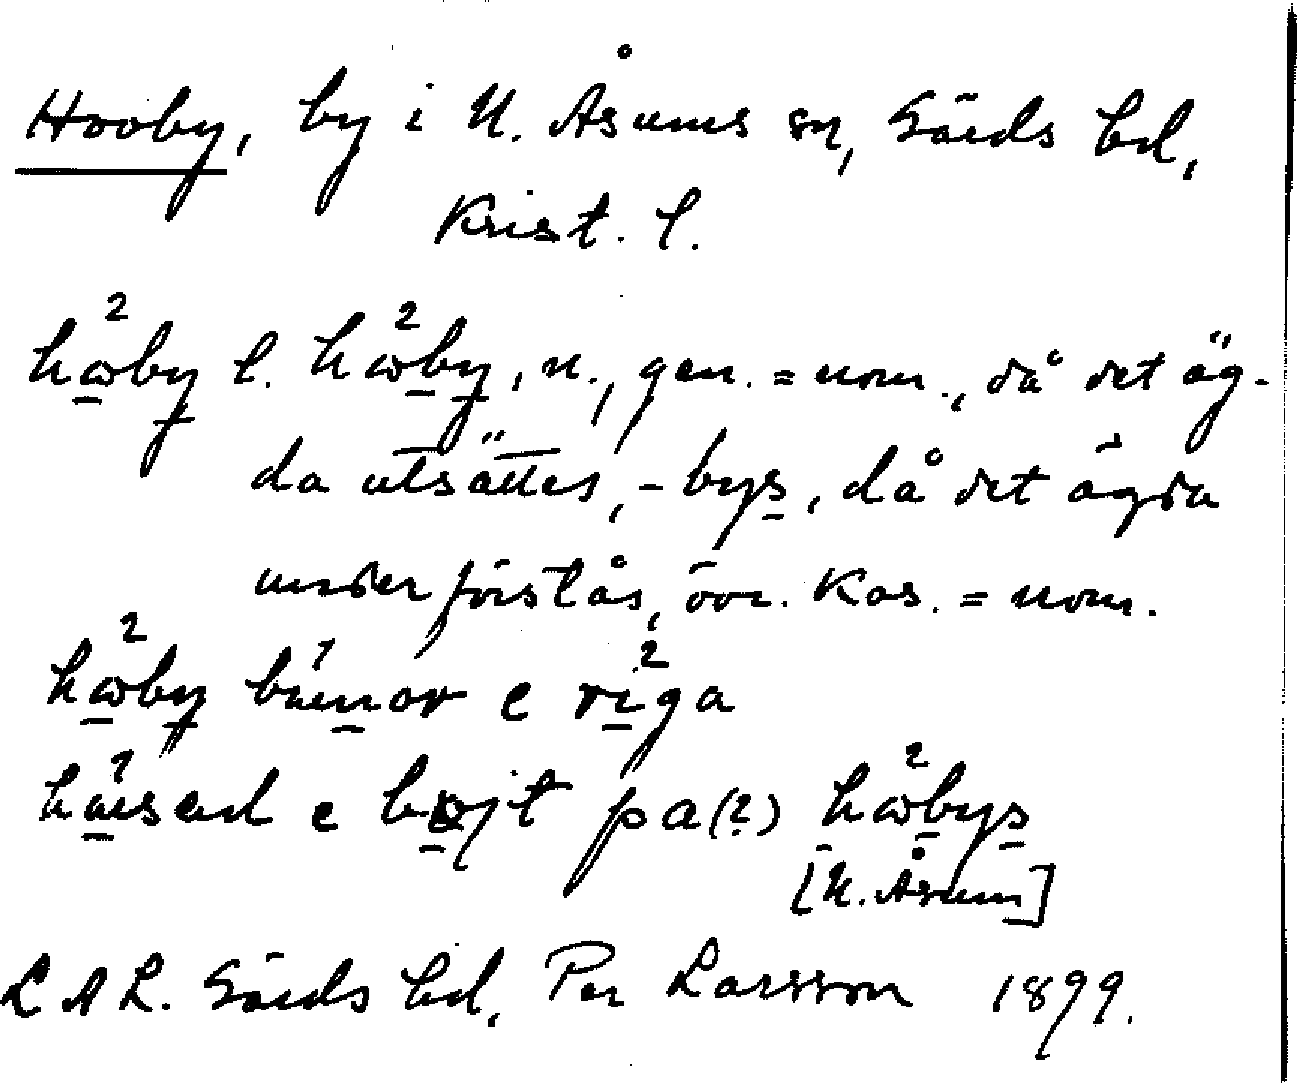 Hooby, by i N. Åsums sn, Gärds hd,
Krist. l.
håby l. håby, n., gen. = nom., då det äg-
da utsättes, -bys, då det ägda
underförstås, övr. kas. = nom.
håby e riga
e pa(?) håbys
[N. Åsum]
L A L. Gärds hd, Per Larsson 1899.